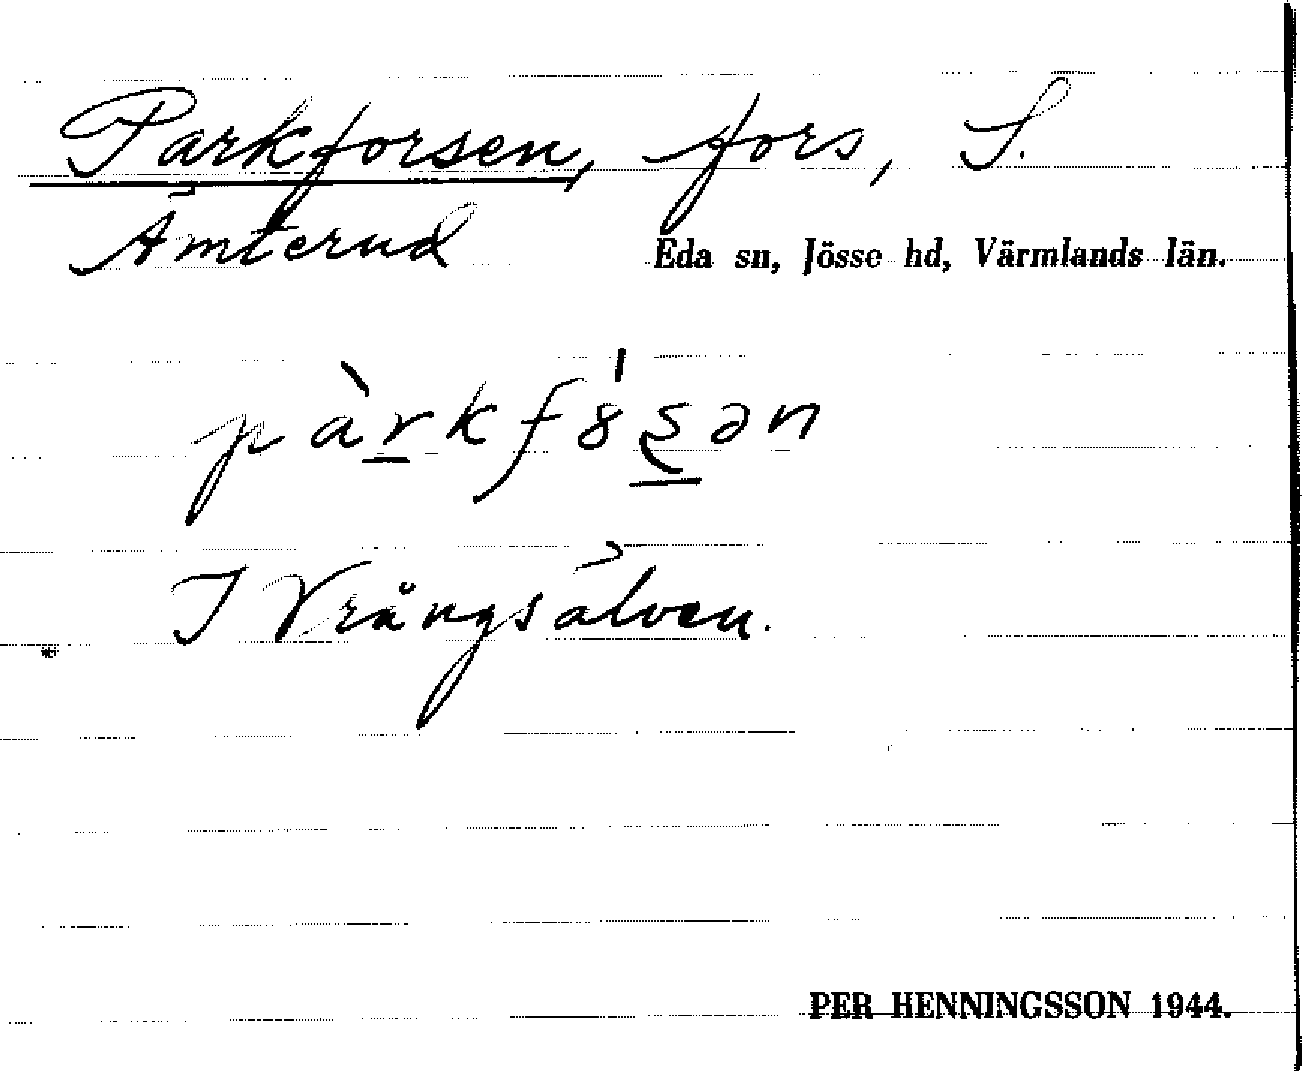 Parkforsen, fors, S.
Ämterud Eda sn, Jösse hd, Värmlands län.
pàrkfȣ́ʂən
I Vrångsälven.
PER HENNINGSSON 1944.